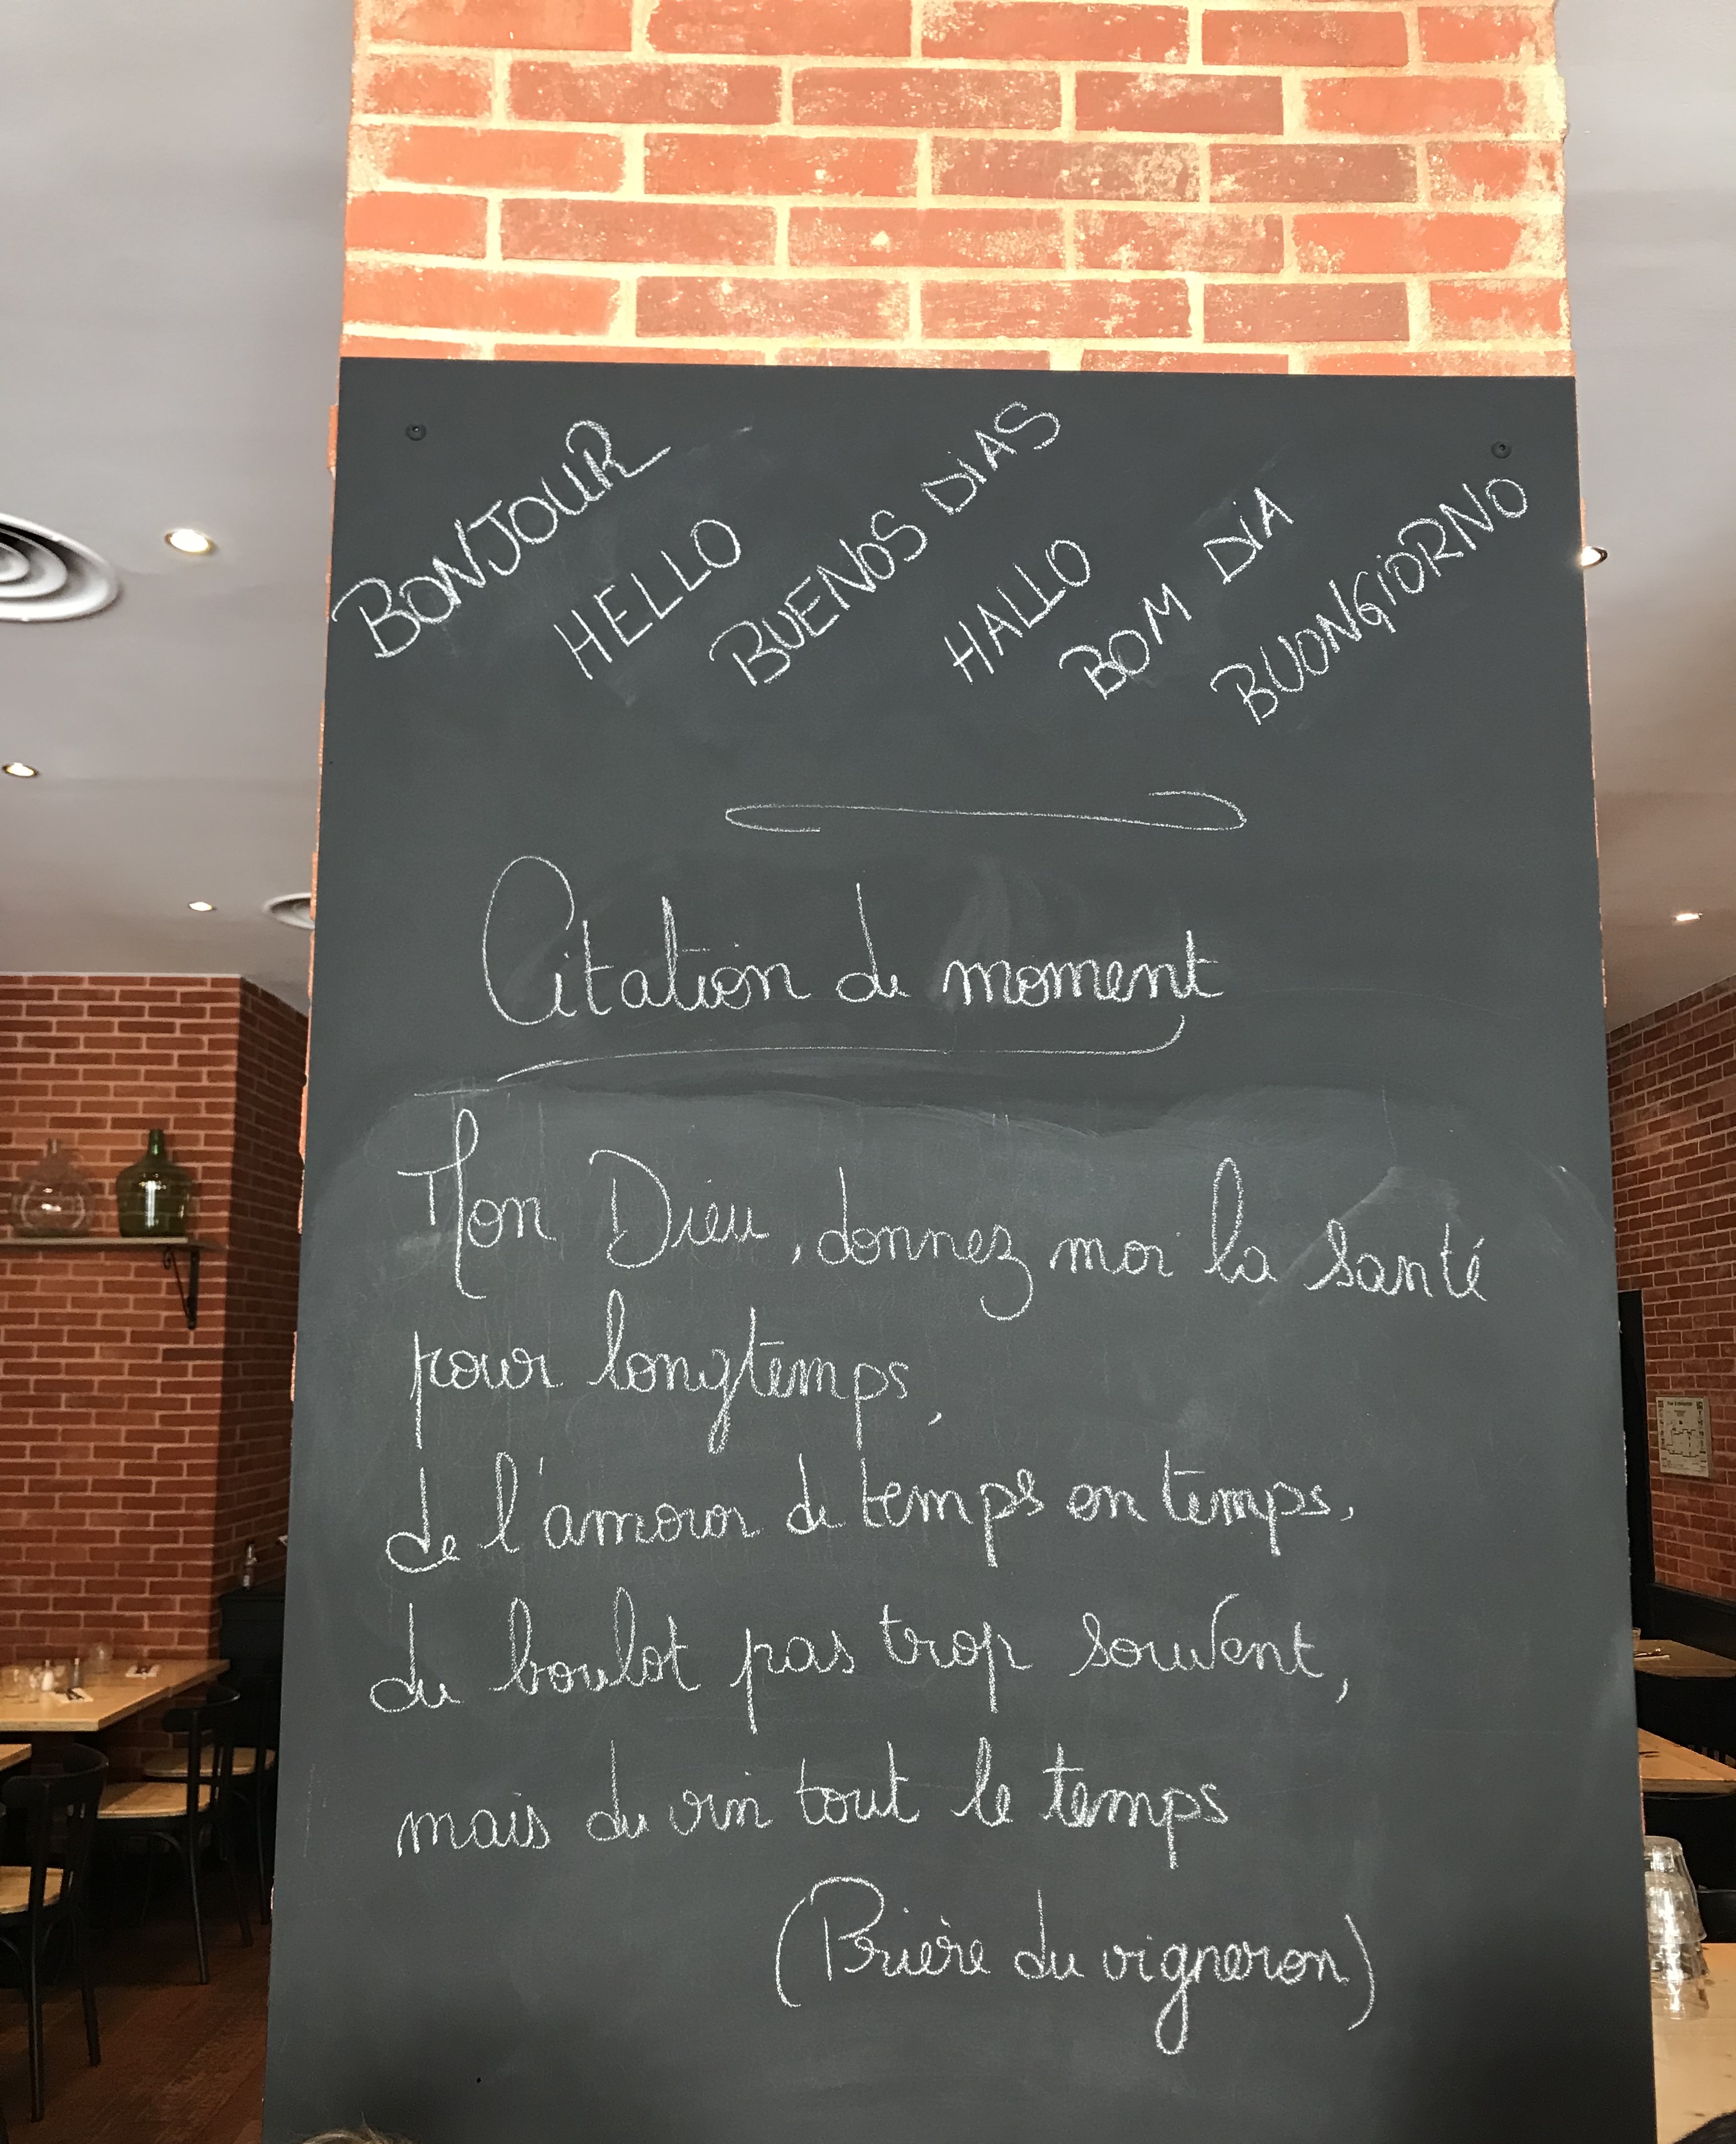 BONJOUR
HELLO
BUENOS DIAS
HALLO
BOM DIA
BUONGIORNO
Citation de moment
Mon Dieu, donnez moi la santé
pour longtemps,
de l'amour de temps en temps,
du boulot pas trop souvent,
mais du vin tout le temps
(Prière du vigneron)